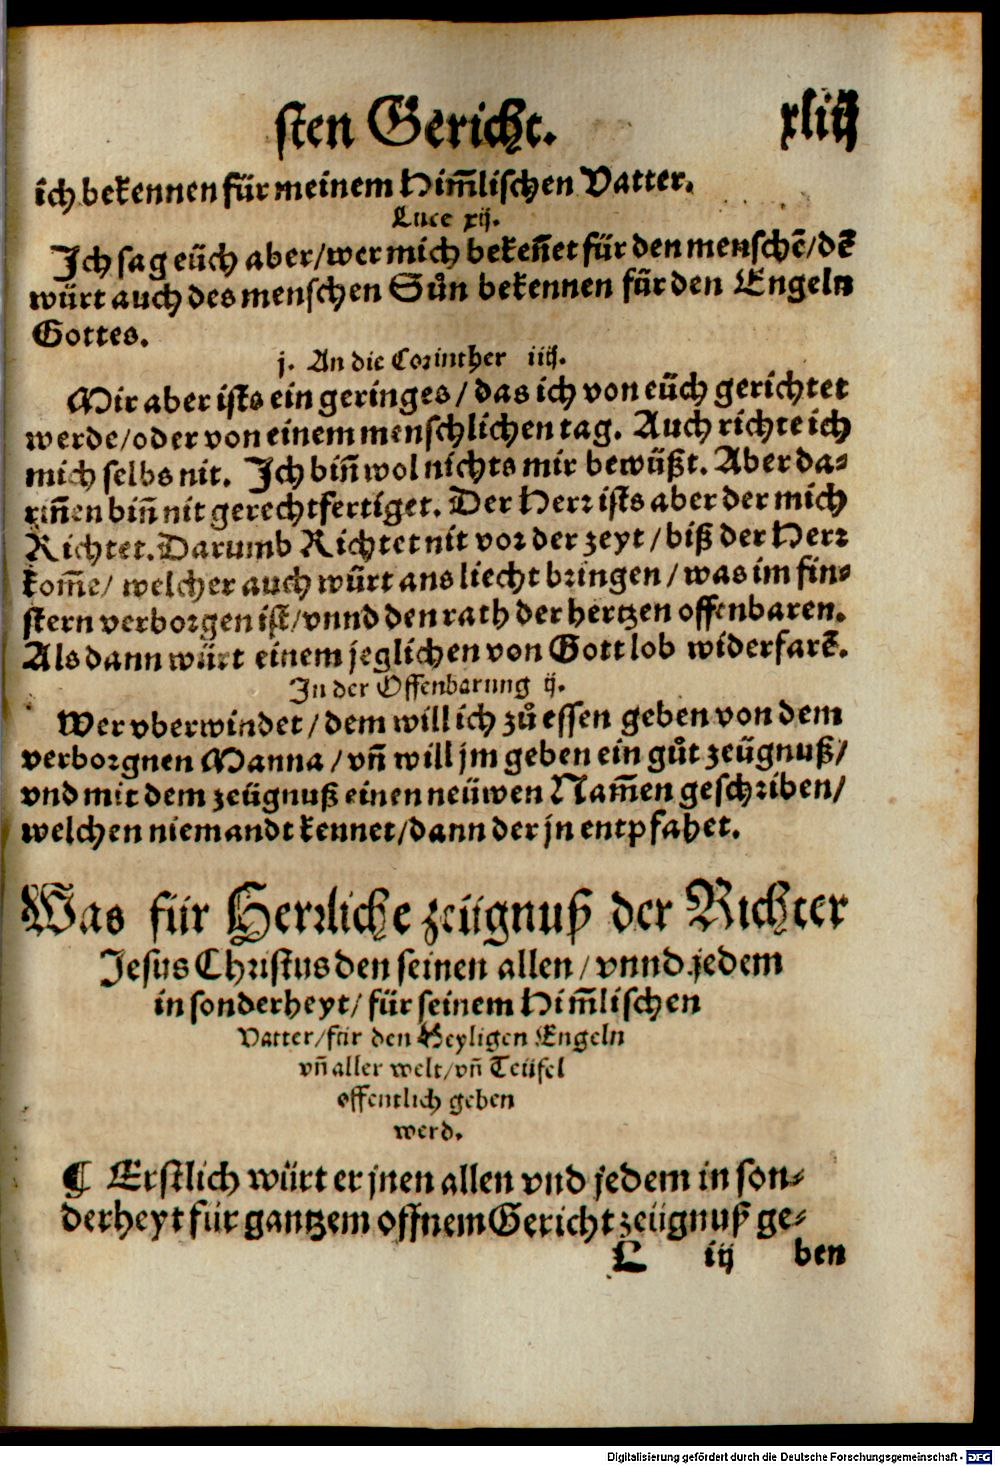 sten Gericht. xliij
ich bekennen für meinem Him̃lischen Vatter.
Luce xij.
Jch sag eüch aber/wer mich beken̄et für den menschẽ/dẽ
würt auch des menschen Sůn bekennen für den Engeln
Gottes.
j. An die Corinther iiij.
Mir aber ists ein geringes/das ich von eüch gerichtet
werde/oder von einem menschlichen tag. Auch richte ich
mich selbs nit. Jch bin̄ wol nichts mir bewüßt. Aber da⸗
rin̄en bin̄ nit gerechtfertiget. Der Herr ists aber der mich
Richtet. Darumb Richtet nit vor der zeyt/biß der Herr
kom̄e/welcher auch würt ans liecht bringen/was im fin⸗
stern verborgen ist/vnnd den rath der hertzen offenbaren.
Als dann würt einem jeglichen von Gott lob widerfarẽ.
Jn der Offenbarung ij.
Wer vberwindet/dem will ich zů essen geben von dem
verborgnen Manna/vn̄ will jm geben ein gůt zeügnuß/
vnd mit dem zeügnuß einen neüwen Nam̄en geschriben/
welchen niemandt kennet/dann der jn entpfahet.
Was für Herrliche zeügnuß der Richter
Jesus Christus den seinen allen/vnnd jedem
in sonderheyt/für seinem Him̄lischen
Vatter/für den Heyligen Engeln
vn̄ aller welt/vn̄ Teüfel
offentlich geben
werd.
¶ Erstlich würt er jnen allen vnd jedem in son⸗
derheyt für gantzem offnem Gericht zeügnuß ge⸗
L iij ben
Digitalisierung gefördert durch die Deutsche Forschungsgemeinschaft - DFG